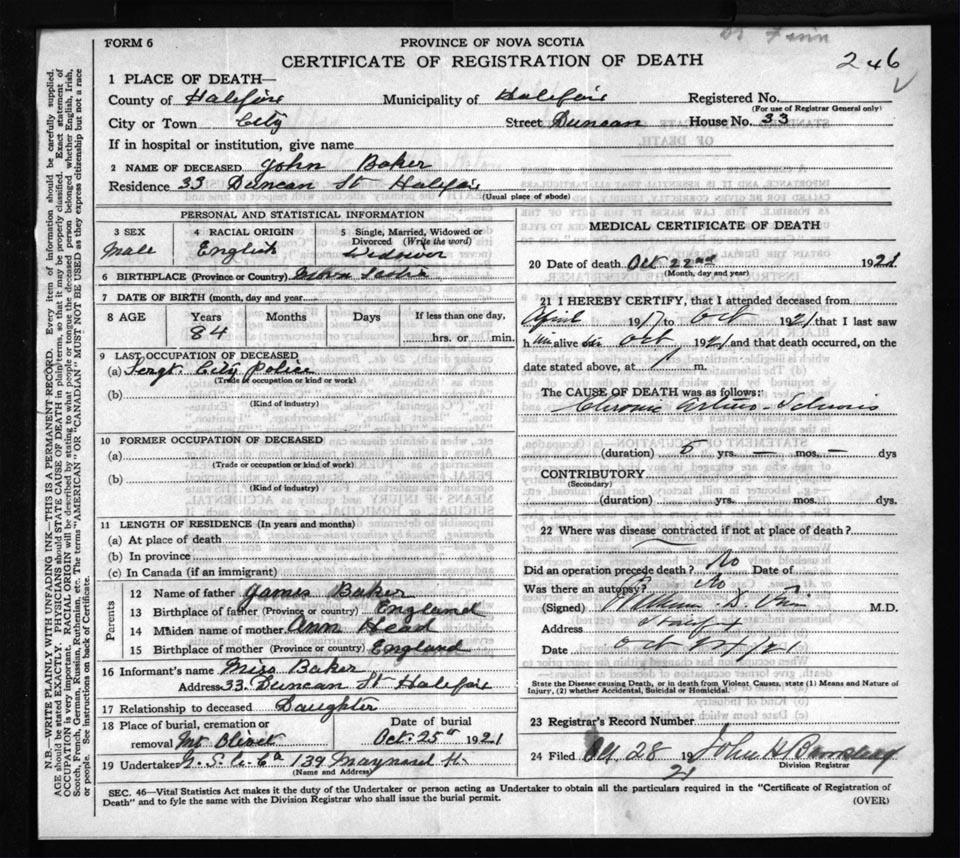 FORM 6
PROVINCE OF NOVA SCOTIA
CERTIFICATE OF REGISTRATION OF DEATH
246
1 PLACE OF DEATH—
County of Halifax Municipality of Halifax Registered No.
(For use of Registrar General only)
City or Town City Street Duncan House No. 33
If in hospital or institution, give name
2 NAME OF DECEASED John Baker
Residence 33 Duncan St Halifax
(Usual place of abode)
PERSONAL AND STATISTICAL INFORMATION
3 SEX
Male
4 RACIAL ORIGIN
English
5 Single, Married, Widowed or Divorced (Write the word)
Widower
6 BIRTHPLACE (Province or Country) Nova Scotia
7 DATE OF BIRTH (month, day and year
8 AGE Years Months Days If less than one day,
84 hrs. or min.
9 LAST OCCUPATION OF DECEASED
(a) Sergt. City Police
(Trade or occupation or kind or work)
(b)
(Kind of industry)
10 FORMER OCCUPATION OF DECEASED
(a)
(Trade or occupation or kind of work)
(b)
(Kind of industry)
11 LENGTH OF RESIDENCE (In years and months)
(a) At place of death
(b) In province
(c) In Canada (if an immigrant)
Parents
12 Name of father James Baker
13 Birthplace of father (Province or country) England
14 Maiden name of mother Ann Head
15 Birthplace of mother (Province or country) England
16 Informant's name Miss Baker
Address 33 Duncan St Halifax
17 Relationship to deceased Daughter
18 Place of burial, cremation or Date of burial
removal Mt Olivet Oct. 25th 1921
19 Undertaker N. S. U. Co 139 Maynard St.
(Name and Address)
MEDICAL CERTIFICATE OF DEATH
20 Date of death Oct 22nd 1921
(Month, day and year)
21 I HEREBY CERTIFY, that I attended deceased from
April 1917 to Oct 1921 that I last saw
him alive on Oct 1921 and that death occurred, on the
date stated above, at m.
The CAUSE OF DEATH was as follows:
Chronic Arterio-Sclerosis
(duration) 5 yrs. — mos. — dys
CONTRIBUTORY
(Secondary)
(duration) yrs. mos. dys.
22 Where was disease contracted if not at place of death?
Did an operation precede death? No Date of
Was there an autopsy? No
(Signed) William D. M.D.
Address Halifax
Date Oct 24/21
State the Disease causing Death, or in death from Violent Causes, state (1) Means and Nature of
Injury, (2) whether Accidental, Suicidal or Homicidal.
23 Registrar's Record Number
24 Filed Oct 28 1921 John H
Division Registrar
SEC. 46—Vital Statistics Act makes it the duty of the Undertaker or person acting as Undertaker to obtain all the particulars required in the "Certificate of Registration of
Death" and to fyle the same with the Division Registrar who shall issue the burial permit.
(OVER)
N.B.—WRITE PLAINLY WITH UNFADING INK—THIS IS A PERMANENT RECORD. Every item of information should be carefully supplied.
AGE should be stated EXACTLY. PHYSICIANS should STATE CAUSE OF DEATH in plain terms, so that it may be properly classified. Exact statement of
OCCUPATION is very important. RACIAL ORIGIN will be described by stating to what people or tongue the deceased person belonged, whether English, Irish,
Scotch, French, German, Russian, Ruthenian, etc. The terms "AMERICAN" OR "CANADIAN" MUST NOT BE USED as they express citizenship but not a race
or people. See instructions on back of Certificate.